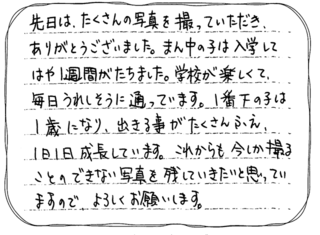 先日は、たくさんの写真を撮っていただき、
ありがとうございました。まん中の子は入学して
はや1週間がたちました。学校が楽しくて、
毎日うれしそうに通っています。1番下の子は
1歳になり、出きる事がたくさんふえ、
1日1日成長しています。これからも今しか撮る
ことのできない写真を残していきたいと思ってい
ますので よろしくお願いします。